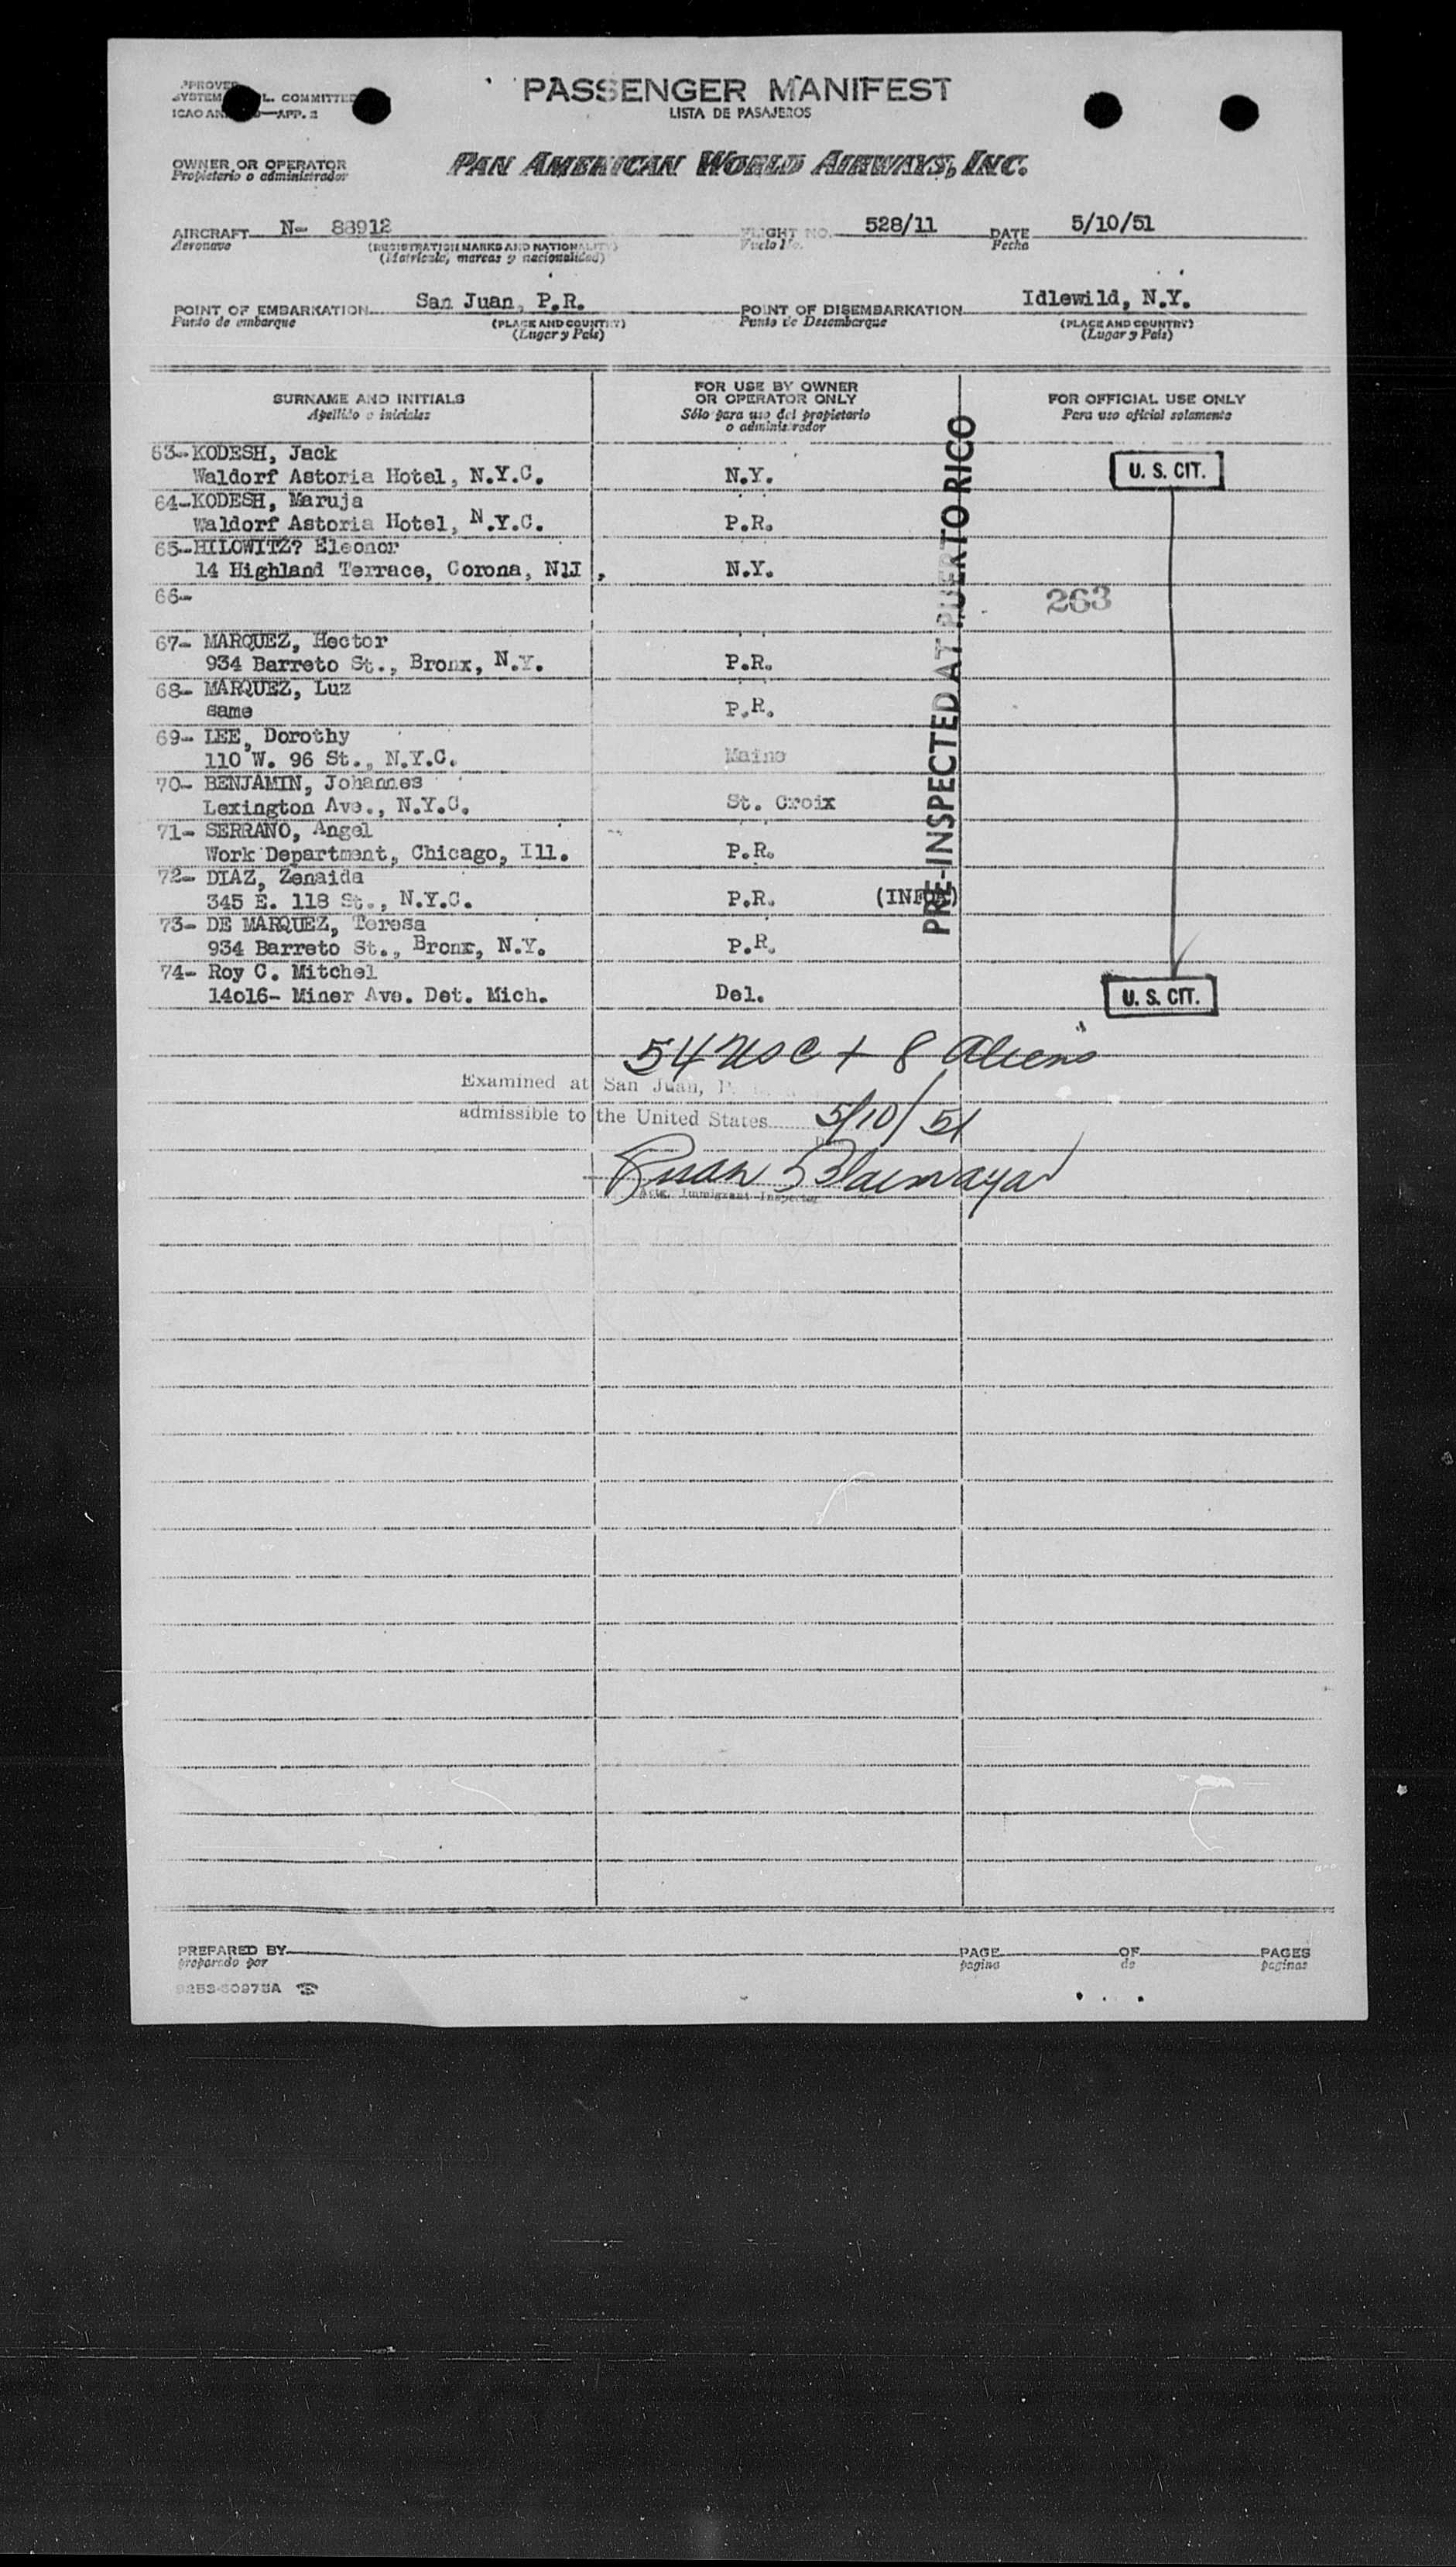 PASSENGER MANIFEST
LISTA DE PASAJEROS
L. COMMITTEE
APP. 2
OWNER OR OPERATOR
Propietario o administrador
PAN AMERICAN WORLD AIRWAYS, INC.
AIRCRAFT N- 88912 FLIGHT NO. 528/11 DATE 5/10/51
Aeronave (REGISTRATION MARKS AND NATIONALITY) Vuelo No. Fecha
(Matricula, marcas y nacionalidad)
POINT OF EMBARKATION San Juan, P.R. POINT OF DISEMBARKATION Idlewild, N.Y.
Punto de embarque (PLACE AND COUNTRY) Punto de Desembarque (PLACE AND COUNTRY)
(Lugar y Pais) (Lugar y Pais)
SURNAME AND INITIALS FOR USE BY OWNER OR OPERATOR ONLY FOR OFFICIAL USE ONLY
Apellido e iniciales Sólo para uso del propietario o administrador Para uso oficial solamente
63- KODESH, Jack
Waldorf Astoria Hotel, N.Y.C. N.Y. U. S. CIT.
64- KODESH, Maruja
Waldorf Astoria Hotel, N.Y.C. P.R.
65- HILOWITZ? Eleonor
14 Highland Terrace, Corona, N1J , N.Y.
66- 263
67- MARQUEZ, Hector
934 Barreto St., Bronx, N.Y. P.R.
68- MARQUEZ, Luz
same P.R.
69- LEE, Dorothy
110 W. 96 St., N.Y.C. Maine
70- BENJAMIN, Johannes
Lexington Ave., N.Y.C. St. Croix
71- SERRANO, Angel
Work Department, Chicago, Ill. P.R.
72- DIAZ, Zenaida
345 E. 118 St., N.Y.C. P.R.
73- DE MARQUEZ, Teresa
934 Barreto St., Bronx, N.Y. P.R.
74- Roy C. Mitchel
14016- Miner Ave. Det. Mich. Del. U. S. CIT.
PRE-INSPECTED AT PUERTO RICO
54 USC + 8 Aliens
Examined at San Juan, P.
admissible to the United States 5/10/51
Actg. Immigrant Inspector
PREPARED BY PAGE OF PAGES
preparado por pagina de paginas